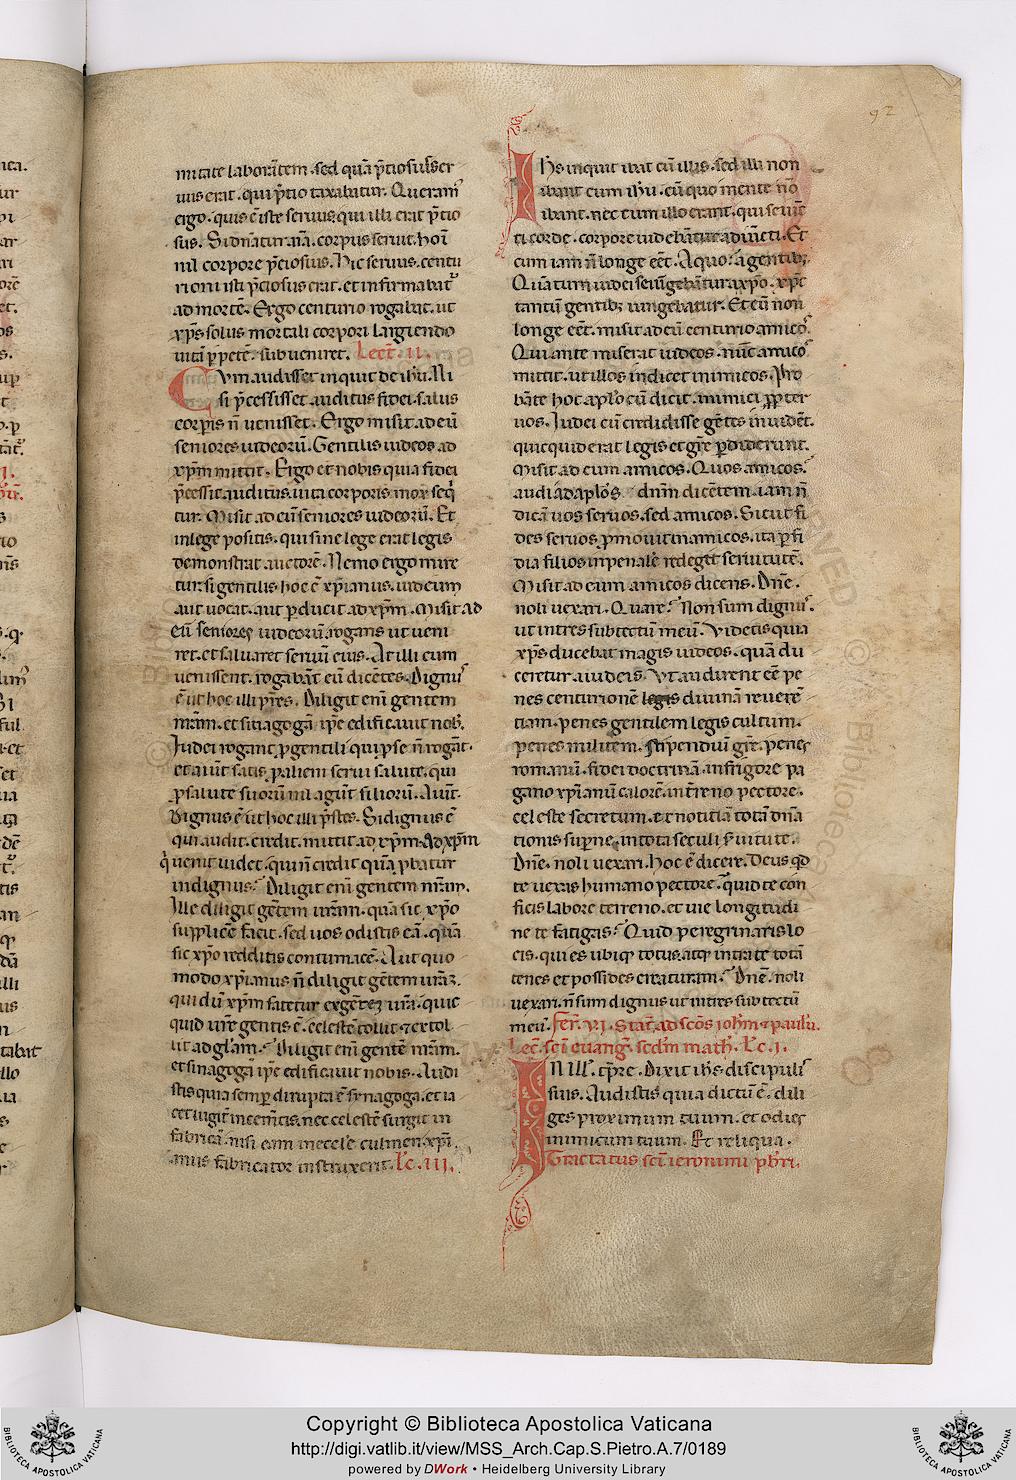 92
mitate laborãtem. sed quã p̃tiosus ser
uus erat. qui p̃tio taxabatur. Queram᷒
ergo. quis ẽ iste seruus. qui illi erat p̃tio
sus. Si dñatur aĩa. corpus seruit. hoĩ
nil corpore p̃ciosius. Hic seruus. centu
rioni isti p̃ciosus erat. et infirmabat᷒
ad mortẽ. Ergo centurio rogabat. ut
xp̃s solus mortali corpori largiendo
uitã p̃petẽ. subueniret. Lect̃. ii.
Cvm audisset inquit de ihũ. Ni
si p̃cessisset auditus fidei. salus
corp̃is ñ uenisset. Ergo misit ad eũ
seniores iudeorũ. Gentilis iudeos ad
xp̃m mittit. Ergo et nobis quia fidei
p̃cessit auditus. uita corporis mox seq̃
tur. Misit ad eũ seniores iudeorũ. Et
in lege positis. qui sine lege erat legis
demonstrat auctorẽ. Nemo ergo mire
tur. si gentilis hoc ẽ xp̃ianus. iudeum
aut uocat. aut p̱ducit ad xp̃m. Misit ad
eũ seniores iudeorũ. rogans ut ueni
ret. et saluaret seruũ eius. At illi cum
uenissent. rogabãt eũ dicẽtes. Dignu᷒
ẽ ut hoc illi p̃stes. Diligit enĩ gentem
nr̃am. et sinagogã ip̃e edificauit nob̃.
Iudei rogant p̱ gentili qui p̱ se ñ rogãt.
et aiũt satis p̱ aliem serui salute. qui
p̱ salute suorũ nil agũt filiorũ. Aiũt.
Dignus ẽ ut hoc illi p̃stes. Si dignus ẽ
qui audit. credit. mittit ad xp̃m. Ad xp̃m
q̃ uenit uidet. qui ñ credit quã p̱batur
indignus? Diligit enĩ gentem nr̃am.
Ille diligit gẽtem ur̃am. quã sic xp̃o
supplicẽ facit. sed uos odistis eã. quã
sic xp̃o redditis contumacẽ. Aut quo
modo xp̃ianus ñ diligit gẽtem ur̃ã?
qui dũ xp̃m fatetur ex gẽte ur̃a. quic
quid ur̃e gentis ẽ. celestẽ tollit ⁊ extol
lit ad gl̃am? Diligit enĩ gentẽ nr̃am.
et sinagogã ip̃e edificauit nobis. Audi
stis quia semp̱ dirupta ẽ synagoga. et ia
cet iugit̃ in cemẽtis. nec celestẽ surgit in
fabricã. nisi eam in ecclẽ culmen. xp̃i
anus fabricator instruxerit. Lc̃. iii.
Ih̃s inquit ibat cũ illis. sed illi non
ibant cum ihũ. cũ quo mente nõ
ibant. nec cum illo erant. qui seiũc
ti corde. corpore uidebãtur adiũcti. Et
cum iam ñ longe eẽt. A quo? a gentib;
Quã tum iudei seiũgebãtur a xp̃o. xp̃s
tantũ gentib; iungebatur. Et cũ non
longe eẽt. misit ad eũ centurio amico᷒.
Qui ante miserat iudeos. nũc amico᷒
mittit. ut illos indicet inimicos. Pro
bãte hoc ap̃lo cũ dicit. inimici p̱pter
uos. Iudei cũ credidisse gẽtes inuidẽt.
quicquid erat legis et gr̃e p̱diderunt.
Misit ad eum amicos. Quos amicos?
audi ad ap̃los dñm dicẽtem. iam ñ
dicã uos seruos. sed amicos. Sicut fi
des seruos p̱mouit in amicos. ita p̱fi
dia filios in penalẽ redeget seruitutẽ.
Misit ad eum amicos dicens. Dñe.
noli uexari. Quare? Non sum dignu᷒.
ut intres sub tectũ meũ. Videtis quia
xp̃s ducebat magis iudeos. quã du
ceretur a iudeis. Vt audirent eẽ pe
nes centurionẽ legis diuinã reuerẽ
tiam. penes gentilem legis cultum.
penes militem. stipendiũ gr̃e. penes
romanũ. fidei doctrinã. in frigore pa
gano xp̃ianũ calorẽ. in t̃reno pectore.
celeste secretum. et notitiã totã dñã
tionis sup̱ne. in tota seculi ser uitute.
Dñe. noli uexari. hoc ẽ dicere. Deus qd̃
te uexas humano pectore? quid te con
ficis labore terreno. et uie longitudi
ne te fatigas? Quid peregrinaris lo
cis. qui es ubiq; totus. atq; intrate totã
tenes et possides creaturam? Dñẽ. noli
uexari. ñ sum dignus ut intres sub tectũ
meũ. Fer̃. vi. Stat̃ ad sc̃os ioh̃m ⁊ paulũ.
Lec̃. sc̃i euang̃. sed̃m math̃. Lc̃. i.
IN ILL̃. t̃pre. Dixit ih̃s discipuli᷒
suis. Audistis quia dictũ ẽ. dili
ges proximum tuum. et odies
inimicum tuum. Et reliqua.
Tractatus sc̃i ieronimi p̃bri.
Copyright © Biblioteca Apostolica Vaticana
http://digi.vatlib.it/view/MSS_Arch.Cap.S.Pietro.A.7/0189
powered by DWork • Heidelberg University Library
BIBLIOTECA APOSTOLICA VATICANA
BIBLIOTECA APOSTOLICA VATICANA